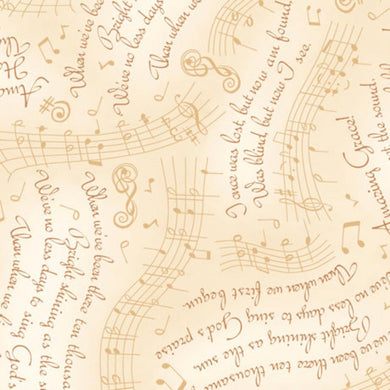 When we've be
Bright
We've no less days
Than when w
I once was lost, but now am found,
Was blind but now I see.
Amazing Grace!
When we've been there ten thousan
Bright shining as the s
We've no less days to sing God's
Than when we f
we've been there ten thousand
Bright shining as the sun.
no less days to sing God's praise
Than when we first began.